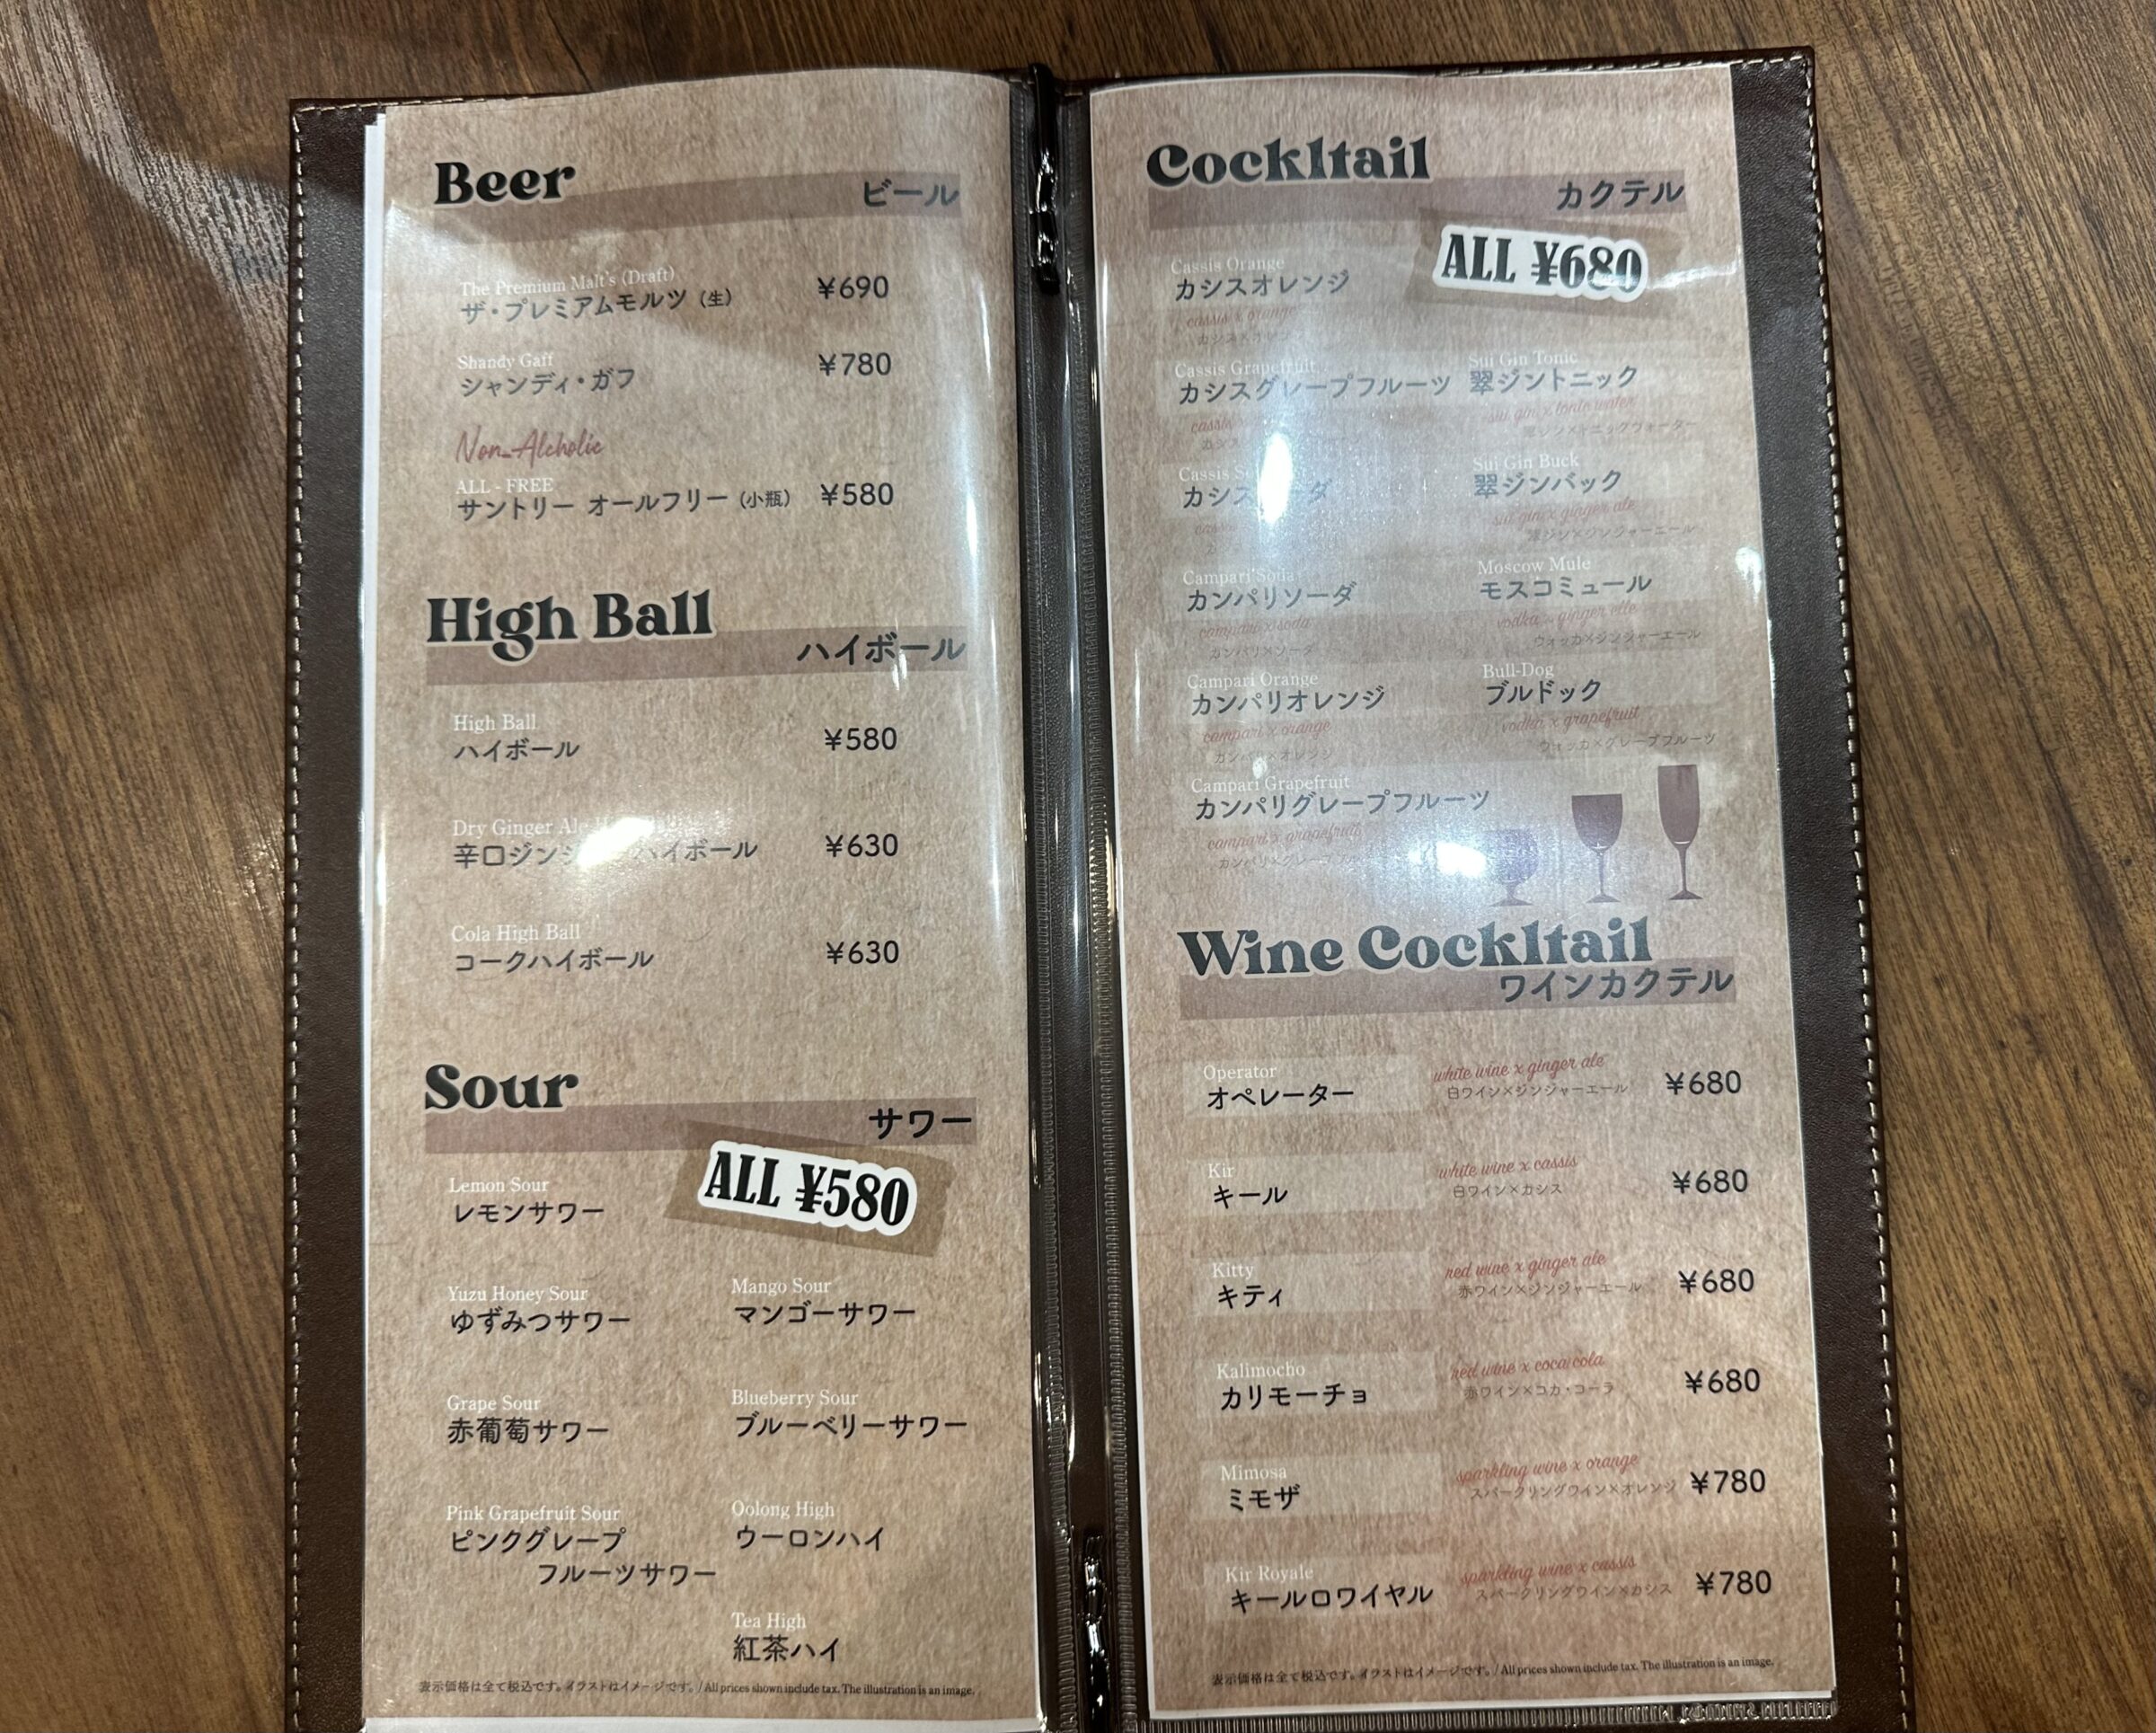 Beer
ビール
The Premium Malt's (Draft)
ザ・プレミアムモルツ (生) ¥690
Shandy Gaff
シャンディ・ガフ ¥780
Non-Alcholic
ALL - FREE
サントリー オールフリー (小瓶) ¥580
High Ball
ハイボール
High Ball
ハイボール ¥580
Dry Ginger Ale
辛口ジン ハイボール ¥630
Cola High Ball
コークハイボール ¥630
Sour
サワー
ALL ¥580
Lemon Sour
レモンサワー
Yuzu Honey Sour
ゆずみつサワー
Grape Sour
赤葡萄サワー
Pink Grapefruit Sour
ピンクグレープ
フルーツサワー
Mango Sour
マンゴーサワー
Blueberry Sour
ブルーベリーサワー
Oolong High
ウーロンハイ
Tea High
紅茶ハイ
表示価格は全て税込です。イラストはイメージです。/ All prices shown include tax. The illustration is an image.
Cockltail
カクテル
ALL ¥680
Cassis Orange
カシスオレンジ
cassis x orange
Cassis Grapefruit
カシスグレープフルーツ
cassis
Cassis
カシス ダ
Campari Soda
カンパリソーダ
campari x soda
カンパリ×ソーダ
Campari Orange
カンパリオレンジ
campari x orange
カンパリ×オレンジ
Campari Grapefruit
カンパリグレープフルーツ
campari x grapefruit
Sui Gin Tonic
翠ジントニック
sui gin x tonic water
翠ジン×トニックウォーター
Sui Gin Buck
翠ジンバック
sui gin x ginger ale
翠ジン×ジンジャーエール
Moscow Mule
モスコミュール
vodka x ginger
ウォッカ×ジンジャーエール
Bull-Dog
ブルドック
vodka x grapefruit
ウォッカ×グレープフルーツ
Wine Cockltail
ワインカクテル
Operator
オペレーター
white wine x ginger ale
白ワイン×ジンジャーエール
¥680
Kir
キール
white wine x cassis
白ワイン×カシス
¥680
Kitty
キティ
red wine x ginger ale
赤ワイン×ジンジャーエール
¥680
Kalimocho
カリモーチョ
red wine x coca cola
赤ワイン×コカ・コーラ
¥680
Mimosa
ミモザ
sparkling wine x orange
スパークリングワイン×オレンジ
¥780
Kir Royale
キールロワイヤル
sparkling wine x cassis
スパークリングワイン×カシス
¥780
表示価格は全て税込です。イラストはイメージです。/ All prices shown include tax. The illustration is an image.